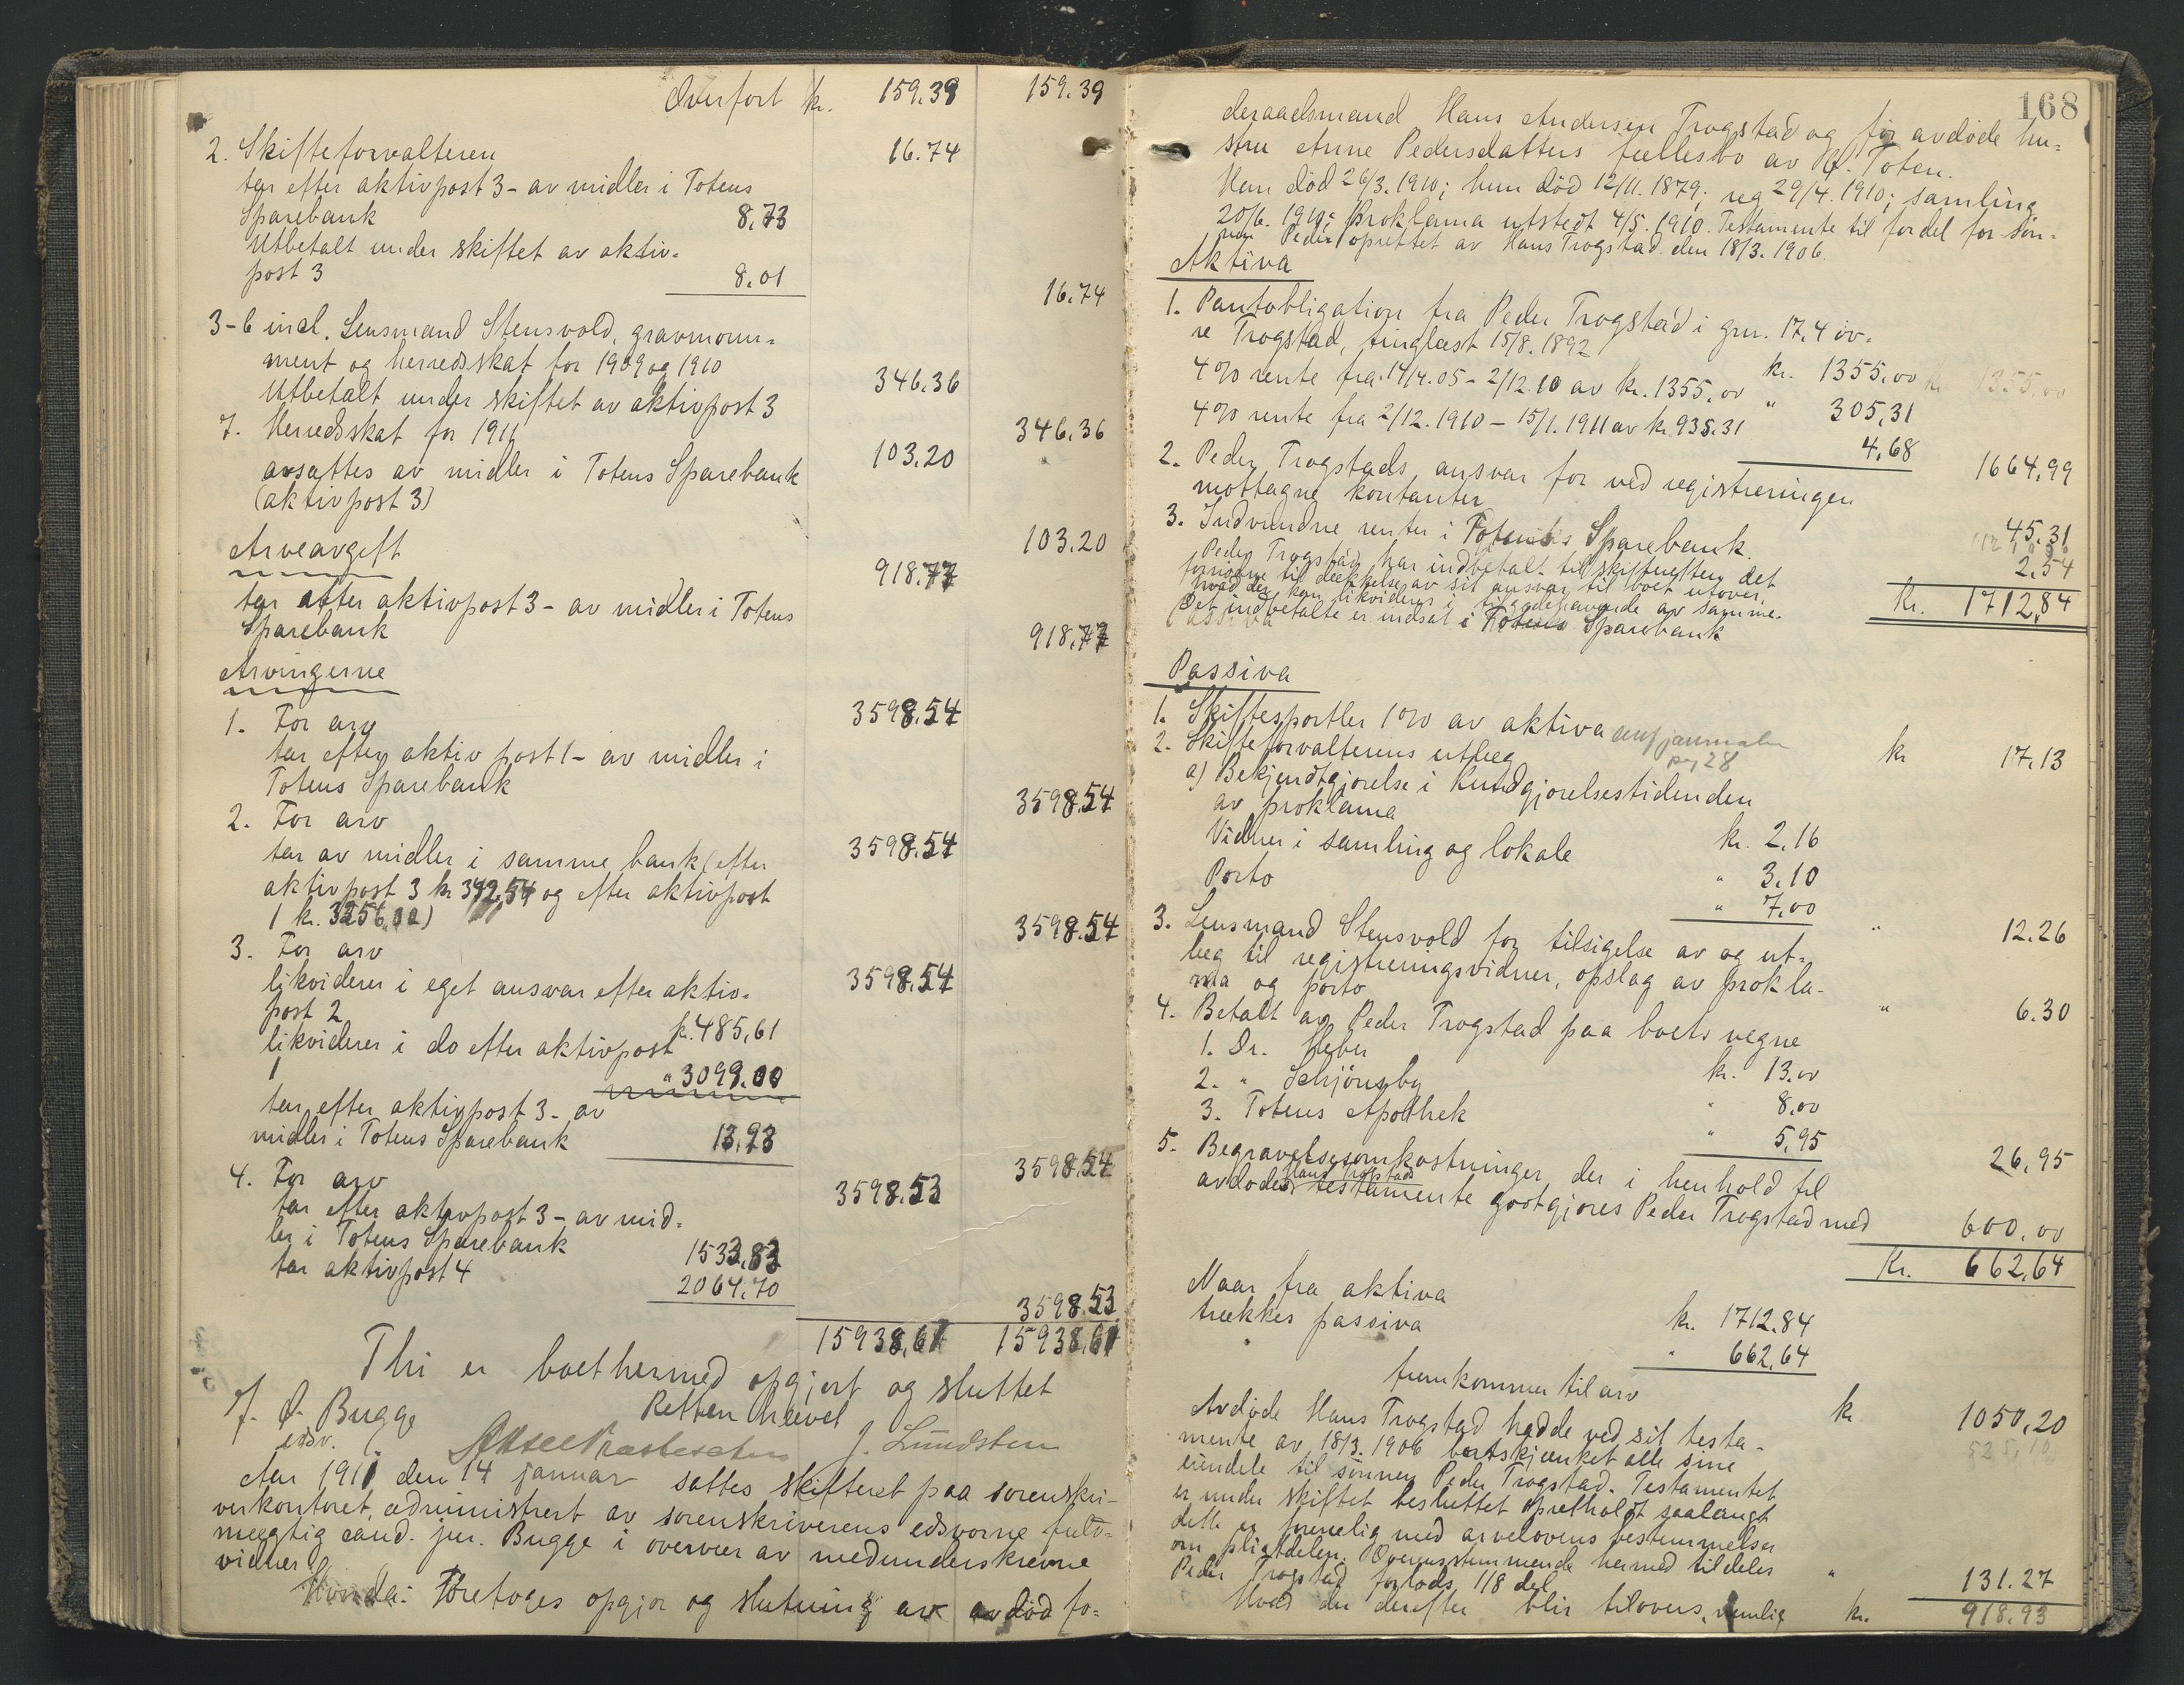 Overført kr. 159.39 159.39
2. Skifteforvalteren 16.74
tar efter aktivpost 3 - av midler i Totens
Sparebank 8,73
Utbetalt under skiftet av aktiv-
post 3 8.01
16.74
3-6 incl. Lensmand Stensvold, gravmonu-
ment og herredsskat for 1909 og 1910 346.36
Utbetalt under skiftet av aktivpost 3
346.36
7. Herredsskat for 1911 103.20
avsættes av midler i Totens Sparebank
(aktivpost 3)
103.20
Arveavgift 918.77
tar efter aktivpost 3 - av midler i Totens
Sparebank
918.77
Arvingerne
1. For arv 3598.54
tar efter aktiv post 1 - av midler i
Totens Sparebank
3598.54
2. For arv 3598.54
tar av midler i samme bank (efter
aktivpost 3 kr 342,54 og efter aktivpost
1 kr. 3256.00)
3598.54
3. For arv 3598.54
likviderer i eget ansvar efter aktiv-
post 2 kr. 485,61
likviderer i do efter aktivpost
1 " 3099.00
tar efter aktivpost 3 - av
midler i Totens Sparebank 13.93
3598.54
4. For arv 3598.53
tar efter aktivpost 3 - av mid-
ler i Totens Sparebank 1533.83
tar aktivpost 4 2064.70
3598.53
15938,61 15938,61
Thi er boet hermed opgjort og sluttet
Retten hævet
J. Ø. Bugge
edsv. J. Lundsten
Aar 1911 den 14 januar sattes skifteret paa sorenskri-
verkontoret, administrert av sorenskriverens edsvorne fuld-
mægtig cand. jur. Bugge i overvær av medunderskrevne
vidner
Hvorda: Foretoges opgjør og slutning av avdød fo-
168
deraadsmand Hans Andersen Trogstad og før avdøde hu-
stru Anne Pedersdatters fællesbo av Ø. Toten.
Han død 26/3. 1910; hun død 12/11. 1879; reg 29/4. 1910; samling
20/6. 1910; Proklama utstedt 4/5. 1910. Testamente til fordel for søn-
nen Peder oprettet av Hans Trogstad den 18/3. 1906.
Aktiva
1. Pantobligation fra Peder Trogstad i grn. 17,4 øv-
re Trogstad, tinglæst 15/8. 1892 kr. 1355,00 kr 1355,00
4% rente fra 14/4. 05 - 2/12. 10 av kr. 1355.00 " 305,31
4% rente fra 2/12. 1910 - 15/1. 1911 av kr. 935.31 4,68
1664,99
2. Peder Trogstads ansvar for ved registreringen
mottagne kontanter 45.31
3. Indvundne renter i Totens Sparebank. 2,54
Peder Trogstad har indbetalt til skifteretten det
fornødne til dækkelse av sit ansvar til boet utover
hvad der kan likvideres i tilgodehavende av samme.
Det indbetalte er indsat i Totens Sparebank
Kr. 1712,84
Passiva
1. Skiftesportler 1% av aktiva kr 17.13
2. Skifteforvalterens utlæg pg 28
a) Bekjendtgjørelse i Kundgjørelsestidenden
av proklama kr. 2.16
Vidner i samling og lokale " 3.10
Porto " 7,00
" 12.26
3. Lensmand Stensvold for tilsigelse av og ut-
læg til registreringsvidner, opslag av prokla-
ma og porto " 6.30
4. Betalt av Peder Trogstad paa boets vegne
1. Dr. Weber kr. 13.00
2. " Schjønsby " 8,00
3. Totens Apothek " 5,95
26,95
5. Begravelsesomkostninger der i henhold til
avdøde Hans Trogstads testamente godtgjøres Peder Trogstad med 600.00
Kr. 662,64
Naar fra aktiva kr. 1712.84
trækkes passiva " 662,64
fremkommer til arv kr. 1050,20
525,10
Avdøde Hans Trogstad hadde ved sit testa-
mente av 18/3. 1906 bortskjænket alle sine
eiendele til sønnen Peder Trogstad. Testamentet
er under skiftet besluttet opretholdt saalangt
dette er forenelig med arvelovens bestemmelser
om pligtdelen. Overensstemmende hermed tildeles
Peder Trogstad forlods 1/8 del " 131.27
Hvad der derefter blir tilovers, nemlig kr. 918.93